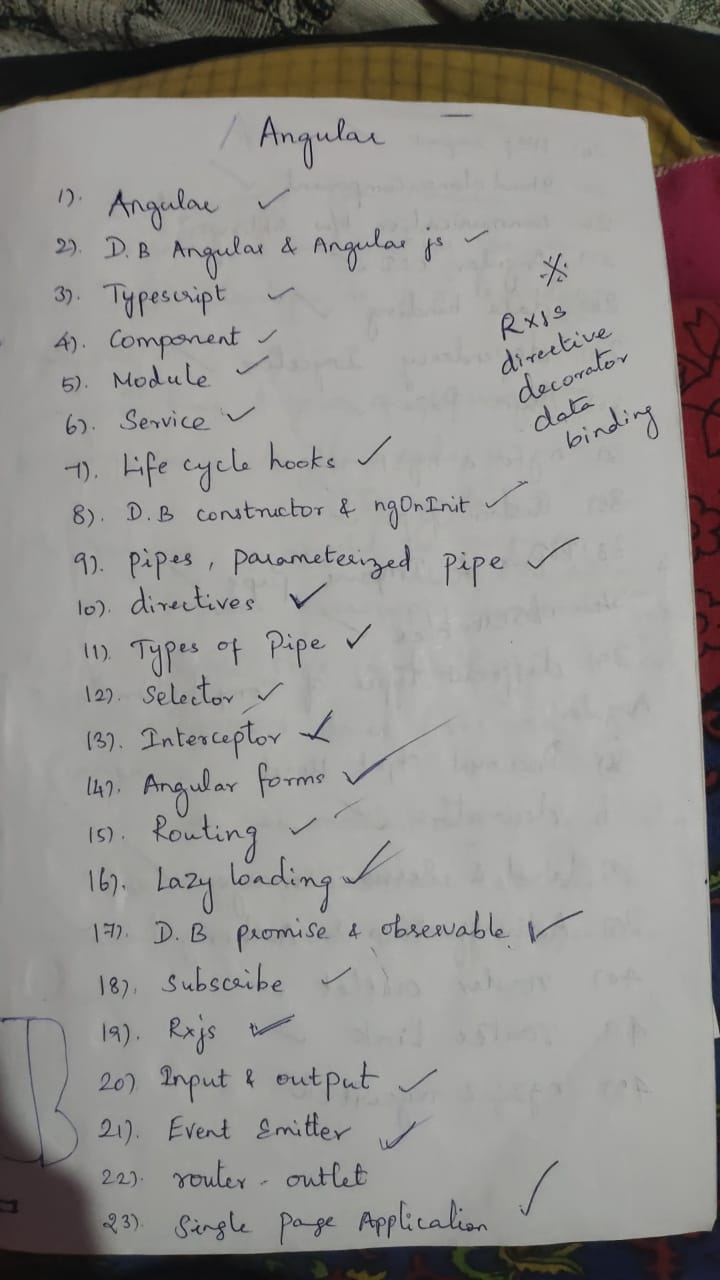 Angular
1). Angular ✓
2). D.B Angular & Angular js ✓
3). Typescript ✓
4). Component ✓
5). Module ✓
6). Service ✓
7). Life cycle hooks ✓
8). D.B constructor & ngOnInit ✓
9). Pipes, parameterized pipe ✓
10). directives ✓
11). Types of Pipe ✓
12). Selector ✓
13). Interceptor ✓
14). Angular forms ✓
15). Routing ✓
16). Lazy loading ✓
17). D.B promise & observable ✓
18). Subscribe ✓
19). Rxjs ✓
20) Input & output ✓
21). Event Emitter ✓
22). router-outlet
23). Single Page Application ✓
※
RxJS
directive
decorator
data
binding